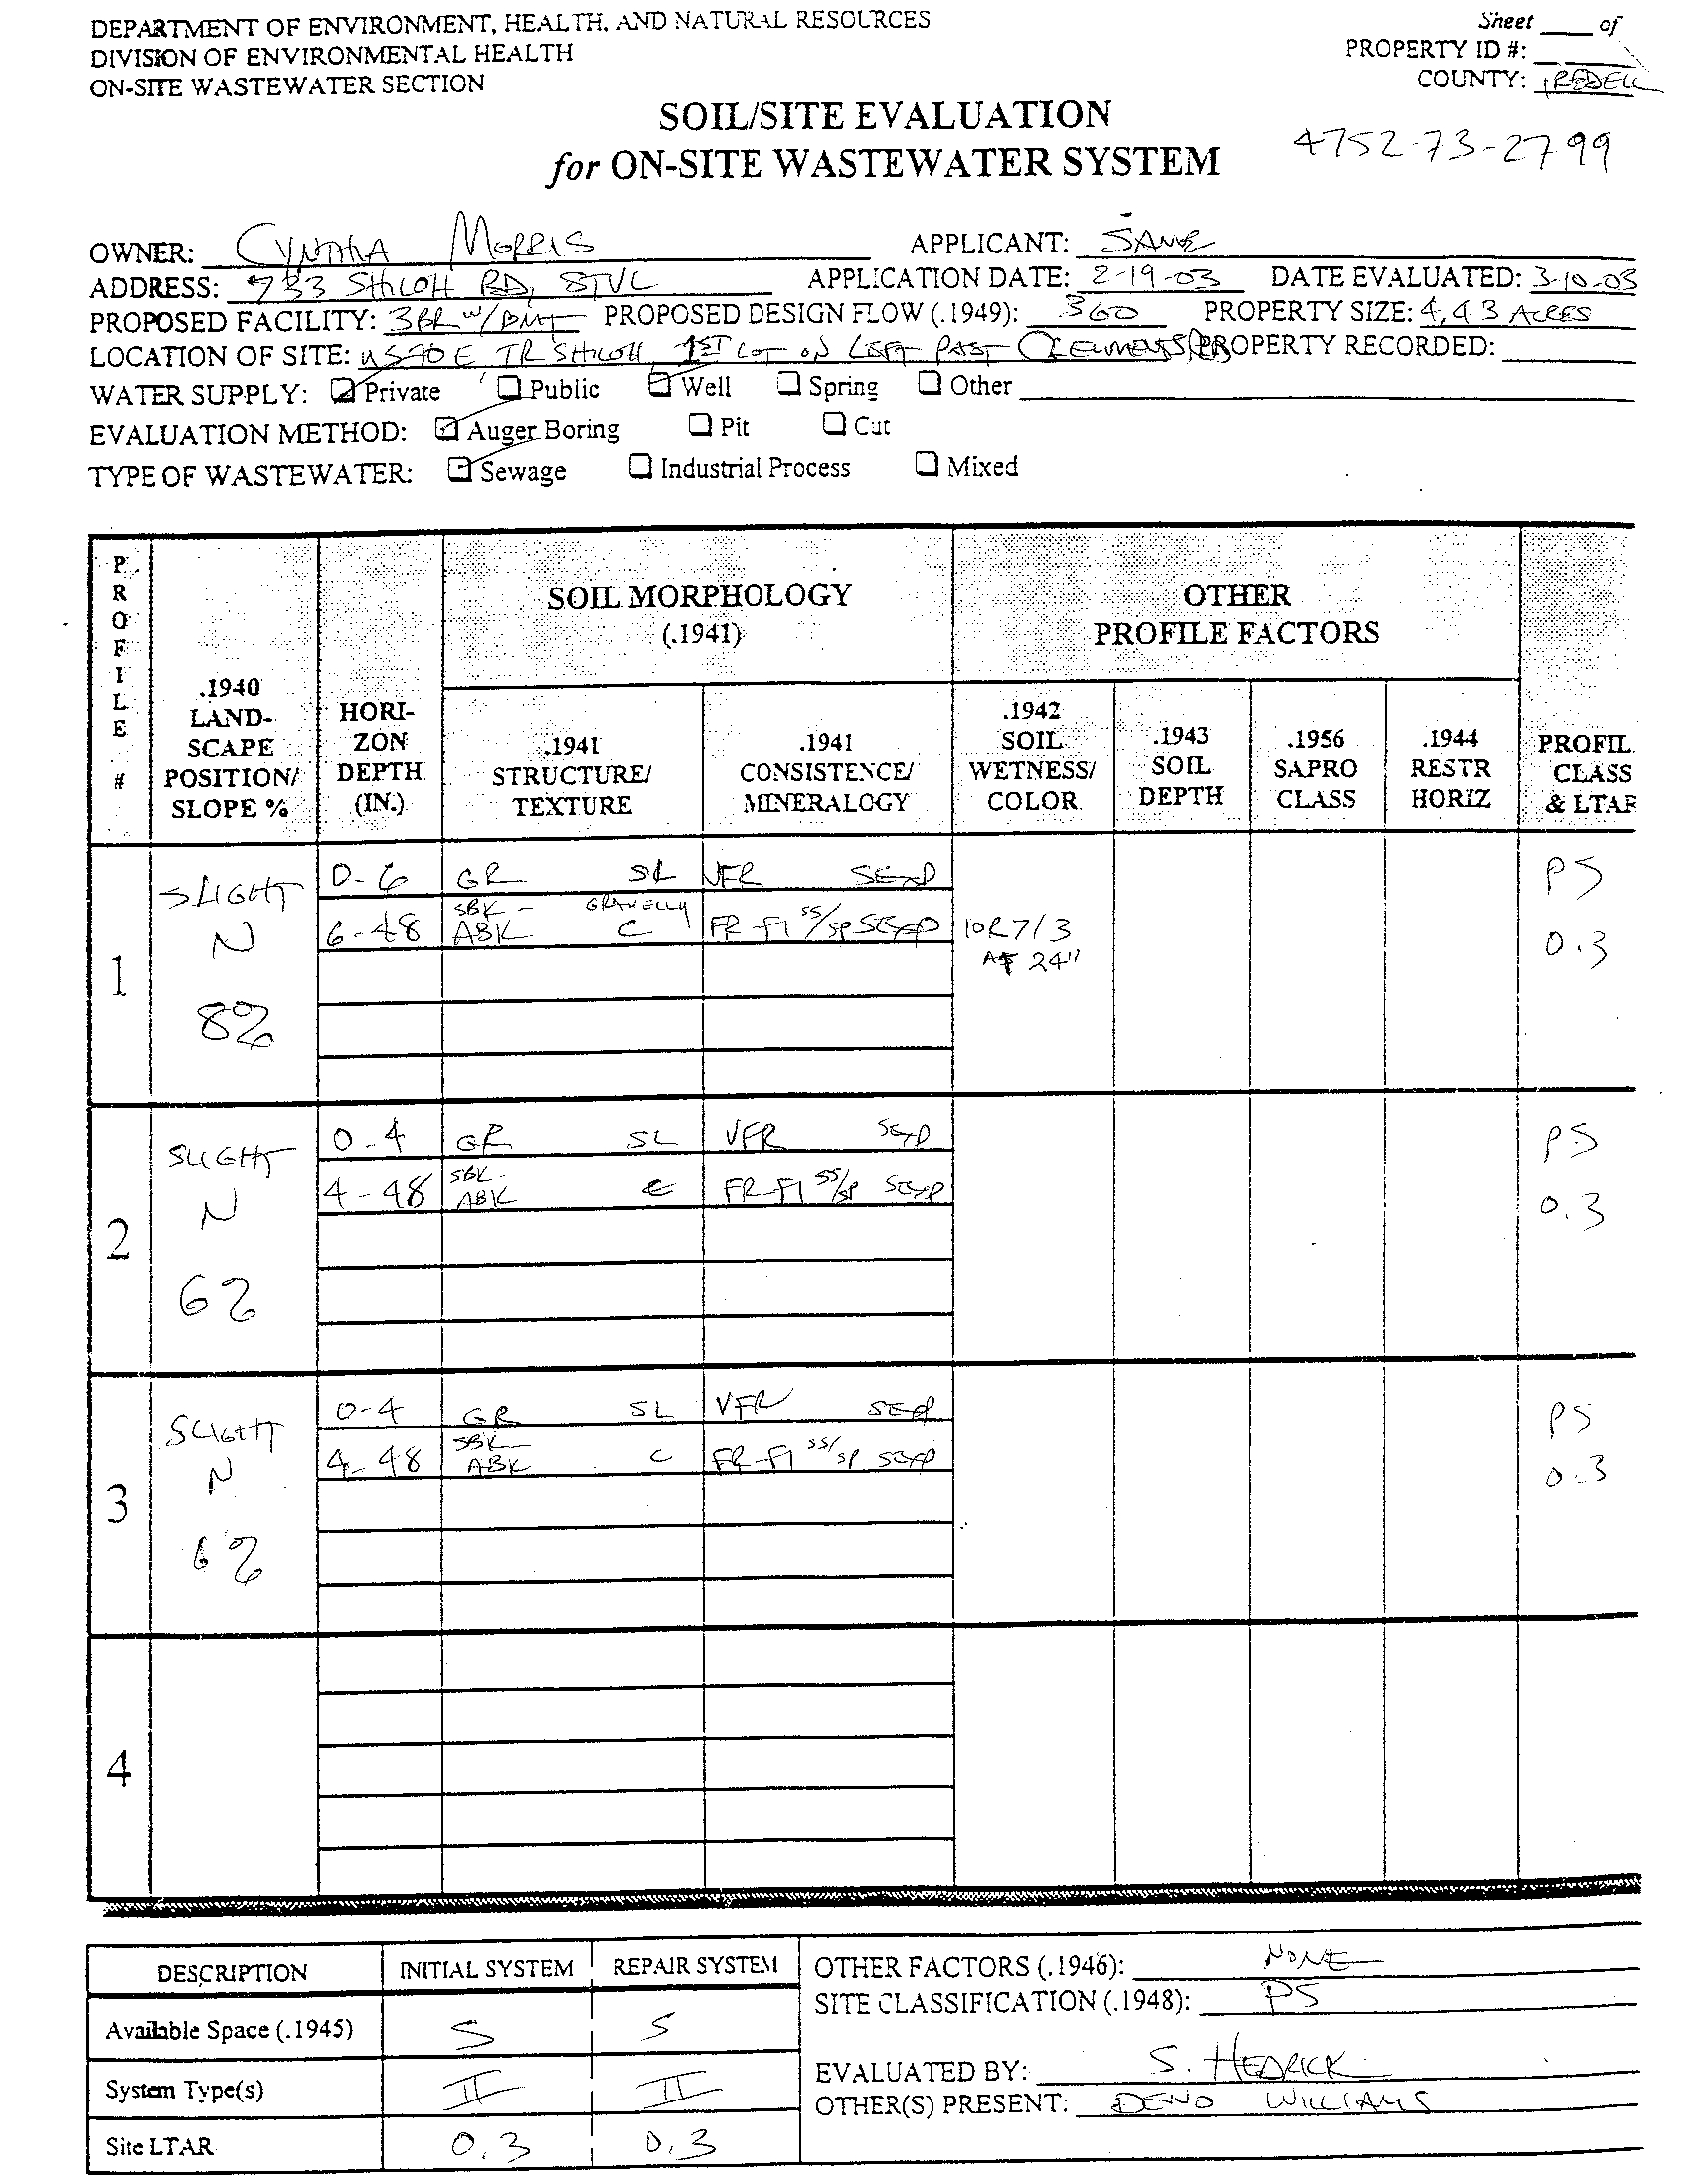 DEPARTMENT OF ENVIRONMENT, HEALTH, AND NATURAL RESOURCES
Sheet ____ of
DIVISION OF ENVIRONMENTAL HEALTH
PROPERTY ID #:
ON-SITE WASTEWATER SECTION
COUNTY: IREDELL
SOIL/SITE EVALUATION
for ON-SITE WASTEWATER SYSTEM
4752-73-2799
OWNER: CYNTHIA MORRIS APPLICANT: SAME
ADDRESS: 733 SHILOH RD, STVL APPLICATION DATE: 2-19-03 DATE EVALUATED: 3-10-03
PROPOSED FACILITY: 3BR w/ BMT PROPOSED DESIGN FLOW (.1949): 360 PROPERTY SIZE: 4.43 ACRES
LOCATION OF SITE: US 70 E TR SHILOH 1ST LOT ON LEFT PAST CLEMENTS PROPERTY RECORDED:
WATER SUPPLY: ☑ Private ☐ Public ☑ Well ☐ Spring ☐ Other
EVALUATION METHOD: ☑ Auger Boring ☐ Pit ☐ Cut
TYPE OF WASTEWATER: ☑ Sewage ☐ Industrial Process ☐ Mixed
PROFILE #
.1940 LAND-SCAPE POSITION/ SLOPE %
HORI-ZON DEPTH (IN.)
SOIL MORPHOLOGY (.1941)
.1941 STRUCTURE/ TEXTURE
.1941 CONSISTENCE/ MINERALOGY
OTHER PROFILE FACTORS
.1942 SOIL WETNESS/ COLOR
.1943 SOIL DEPTH
.1956 SAPRO CLASS
.1944 RESTR HORIZ
PROFIL CLASS & LTAR
1 SLIGHT N 8%
0-6 GR SL VFR SEXP
6-48 SBK-ABK GRAVELLY C FR-FI SS/SP SEXP 10R 7/3 AT 24"
PS 0.3
2 SLIGHT N 6%
0-4 GR SL VFR SEXP
4-48 SBK-ABK C FR-FI SS/SP SEXP
PS 0.3
3 SLIGHT N 6%
0-4 GR SL VFR SEXP
4-48 SBK-ABK C FR-FI SS/SP SEXP
PS 0.3
4
DESCRIPTION INITIAL SYSTEM REPAIR SYSTEM
Available Space (.1945) S S
System Type(s) II II
Site LTAR 0.3 0.3
OTHER FACTORS (.1946): NONE
SITE CLASSIFICATION (.1948): PS
EVALUATED BY: S. HEDRICK
OTHER(S) PRESENT: DENO WILLIAMS